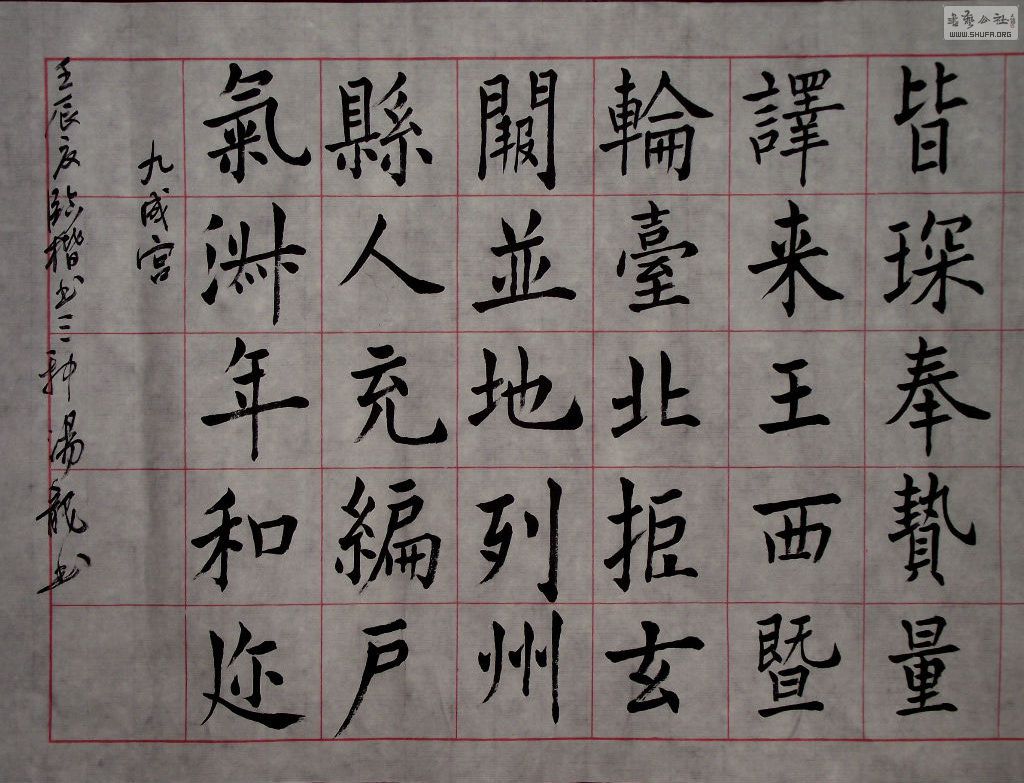 皆琛奉贄量
譯来王西暨
輪臺北拒玄
闕並地列州
縣人充編戶
氣淑年和迩
九成宫
壬辰夏临楷书三种 湯龍书
書藝公社
WWW.SHUFA.ORG